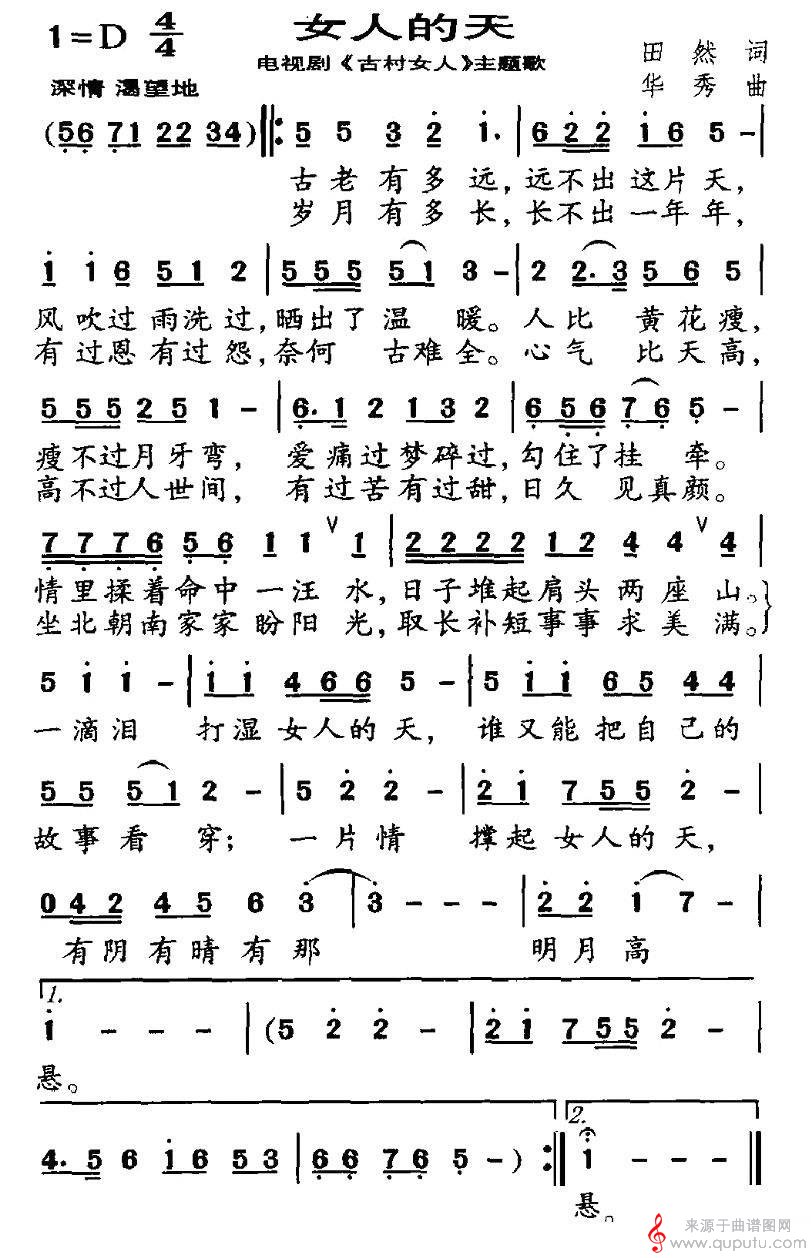 1=D 4/4
女人的天
电视剧《古村女人》主题歌
田然词
华秀曲
深情 渴望地
(56 71 22 34) 5 5 3 2 1. 6 2 2 1 6 5 -
古老有多远,远不出这片天,
岁月有多长,长不出一年年,
1 1 6 5 1 2 5 5 5 5 1 3 - 2 2. 3 5 6 5
风吹过雨洗过,晒出了温暖。人比黄花瘦,
有过恩有过怨,奈何古难全。心气比天高,
5 5 5 2 5 1 - 6. 1 2 1 3 2 6 5 6 7 6 5 -
瘦不过月牙弯,爱痛过梦碎过,勾住了挂牵。
高不过人世间,有过苦有过甜,日久见真颜。
7 7 7 6 5 6 1 1 V 1 2 2 2 2 1 2 4 4 V 4
情里揉着命中一汪水,日子堆起肩头两座山。
坐北朝南家家盼阳光,取长补短事事求美满。
5 1 1 - 1 1 4 6 6 5 - 5 1 1 6 5 4 4
一滴泪打湿女人的天,谁又能把自己的
5 5 5 1 2 - 5 2 2 - 2 1 7 5 5 2 -
故事看穿;一片情撑起女人的天,
0 4 2 4 5 6 3 3 - - - 2 2 1 7 -
有阴有晴有那明月高
1.
1 - - - (5 2 2 - 2 1 7 5 5 2 -
悬。
2.
4. 5 6 1 6 5 3 6 6 7 6 5 -) 1 - - -
悬。
来源于曲谱图网
www.quputu.com